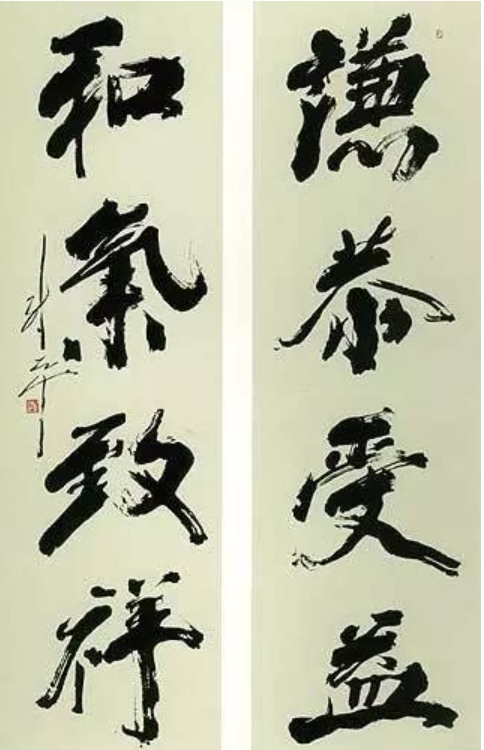 謙恭受益
和氣致祥